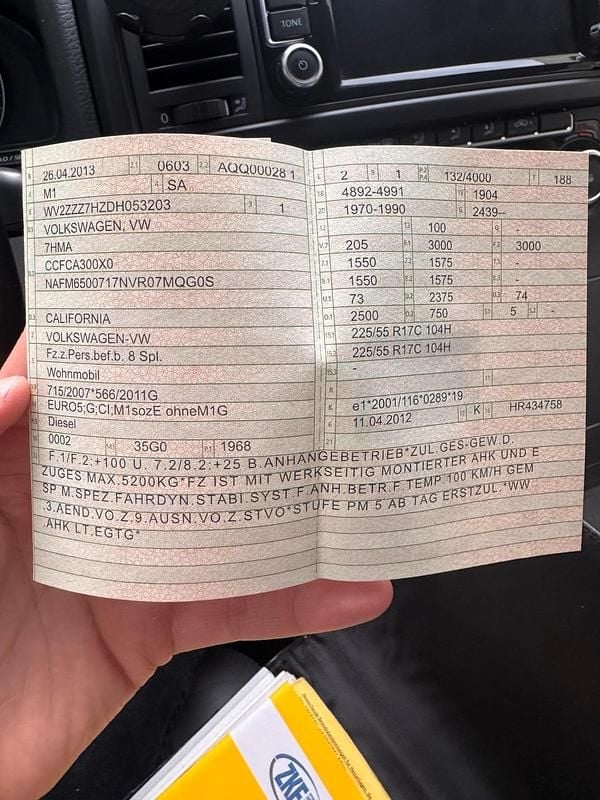 TONE
0
B 26.04.2013 2.1 0603 2.2 AQQ00028 1
J M1 4 SA
E WV2ZZZ7HZDH053203 3 1
D.1 VOLKSWAGEN, VW
7HMA
D.2 CCFCA300X0
NAFM6500717NVR07MQG0S
D.3 CALIFORNIA
2 VOLKSWAGEN-VW
5 Fz.z.Pers.bef.b. 8 Spl.
Wohnmobil
V.9 715/2007*566/2011G
14 EURO5;G;CI;M1sozE ohneM1G
P.3 Diesel
10 0002 14.1 35G0 P.1 1968
22 F.1/F.2:+100 U. 7.2/8.2:+25 B.ANHANGEBETRIEB*ZUL.GES-GEW.D.
ZUGES MAX.5200KG*FZ IST MIT WERKSEITIG MONTIERTER AHK UND E
SP M.SPEZ.FAHRDYN.STABI.SYST.F.ANH.BETR.F.TEMP.100 KM/H GEM
.3.AEND.VO.Z.9.AUSN.VO.Z.STVO*STUFE PM 5 AB TAG ERSTZUL.*WW
.AHK LT.EGTG*
L 2 9 1 P.2 P.4 132/4000 T 188
18 4892-4991 19 1904
20 1970-1990 G 2439--
12 - 13 100 Q -
V.7 205 F.1 3000 F.2 3000
7.1 1550 7.2 1575 7.3 -
8.1 1550 8.2 1575 8.3 -
U.1 73 U.2 2375 U.3 74
O.1 2500 O.2 750 S.1 5 S.2 -
15.1 225/55 R17C 104H
15.2 225/55 R17C 104H
15.3 -
R 11
K e1*2001/116*0289*19
6 11.04.2012 17 K 16 HR434758
21
ZKF